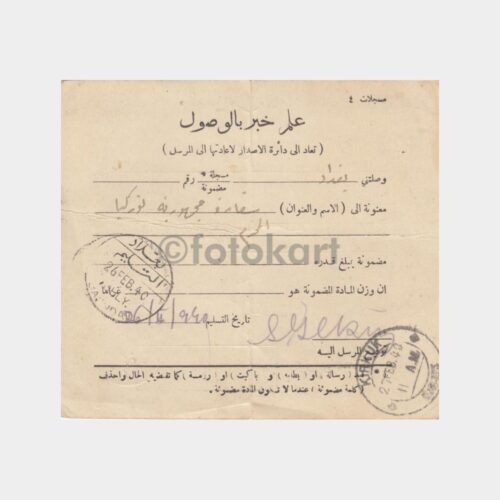 مسجلات ٤
علم خبر بالوصول
( تعاد الى دائرة الاصدار لاعادتها الى المرسل )
وصلتني مسجلة * مضمونة رقم بغداد
معنونة الى ( الاسم والعنوان ) سفارة جمهورية تركيا
©fotokart
مضمونة بمبلغ قدره
ان وزن المادة المضمونة هو
تاريخ التسليم
المرسل اليه
بغداد
التسليم
26 FEB. 40
KIRKUK
27 FEB. 40
11 A.M
* ( رسالة ) او ( بطاقة ) و ( باكيت ) او ( رزمة ) كما تقتضيه الحال واحذف
( كلمة مضمونة ) عندما لا تكون المادة مضمونة .